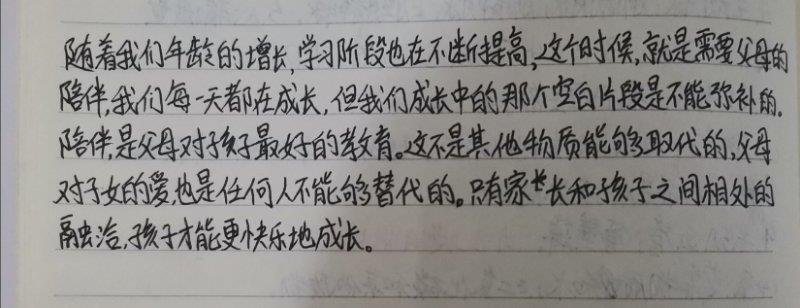 随着我们年龄的增长,学习阶段也在不断提高,这个时候,就是需要父母的
陪伴,我们每一天都在成长,但我们成长中的那个空白片段是不能弥补的.
陪伴,是父母对孩子最好的教育。这不是其他物质能够取代的,父母
对子女的爱也是任何人不能够替代的。只有家长和孩子之间相处的
融洽,孩子才能更快乐地成长。